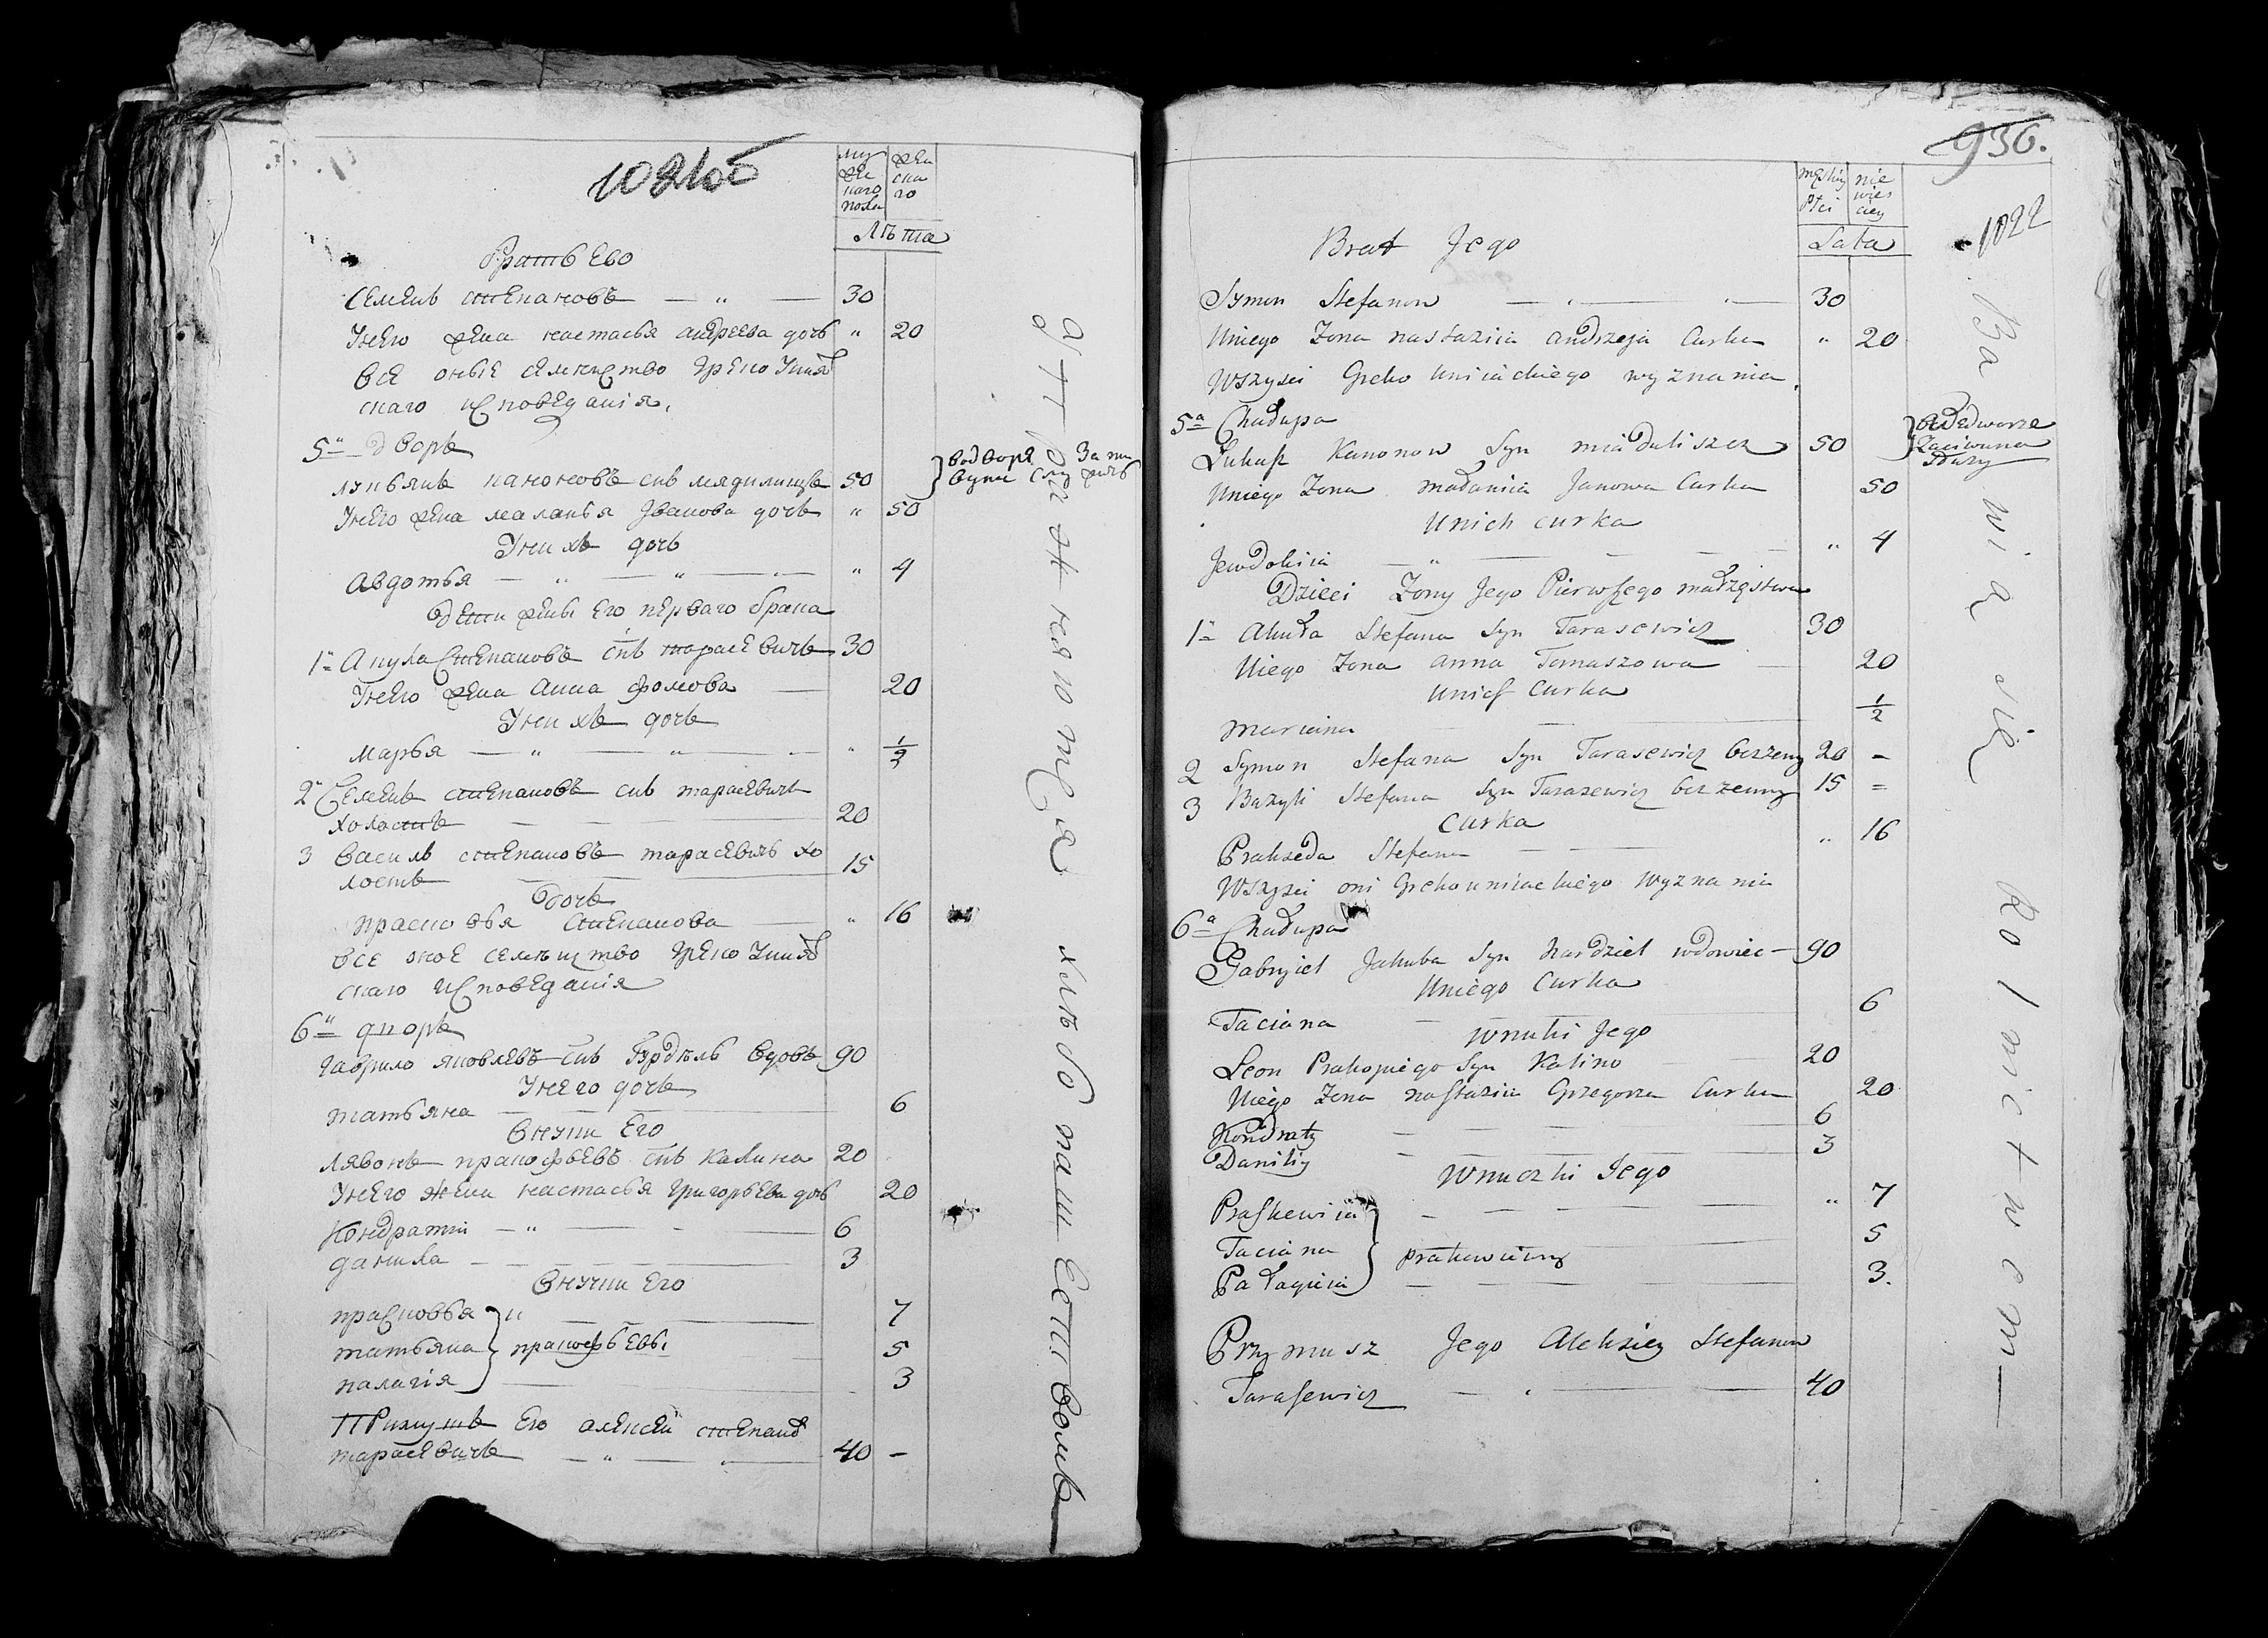 1021об
му
же
наго
пола
жен
ска
го
Лѣта
Братъ Ево
Семенъ степановъ — „ — 30
У него жена настасья андреева дочь „ 20
все оные семейство Греко Униат
скаго исповеданія.
5й дворъ
лукьянъ каноновъ снъ мядилицъ 50
У него жена маланья Иванова дочь „ 50
У нихъ дочь
авдотья — „ — „ — „ 4
дети жены его перваго брака
1й Акула Степановъ снъ тарасевичъ 30
У него жена анна фомова — 20
У нихъ дочь
марья — „ — „ — „ 1/2
2й Семенъ степановъ снъ тарасевичъ
холостъ — 20
3 василь степановъ тарасевичъ хо
лостъ — 15
дочь
прасковья степанова — „ 16
все оное семейство Греко Униат
скаго исповеданія
6й дворъ
гаврило яковлевъ снъ Гурдзель вдовъ 90
У него дочь
татьяна — 6
внуки Его
лявонъ пракофьевъ снъ калина 20
У него жена настасья григорьева дочь 20
Кондратій — „ — 6
данила — 3
внучки Его
прасковья „ — 7
татьяна пракофьевы — 5
палагія — 3
Примушъ Его алексей степанов
тарасевичъ — „ — 40 —
в дворѣ За ти
вуна служитъ
упражняютца хлѣбопашествомъ
936.
1022
męskiey
płci
nie
wies
ciey
Lata
Brat Jego
Symon Stefanow — 30
Uniego Zona nastazija andrzeja Curka „ 20
Wszysci Greko Uniackiego wyznania.
5a Chałupa
Łukasz Kanonow Syn miaduliszcz 50
Uniego Zona małanija Janowa Curka 50
Unich curka
Jewdokija — „ — „ 4
Dzieci Zony Jego Pierwszego małżęstwa
1a Akuła Stefana Syn Tarasewicz 30
Uiego Zona anna Tomaszowa — 20
Unich Curka
Marcina — 1/2
2 Symon Stefana Syn Tarasewicz bezzeny 20 —
3 Bazyli Stefana Syn Tarasewicz bezzenny 15 =
Curka
Prakseda Stefana — „ 16
Wszysci oni Grekouniackiego wyznania
6a Chałupa
Gabryiel Jakuba Syn Hardziel wdowiec — 90
Uniego Curka
Taciana — 6
wnuki Jego
Leon Prakopiego Syn Kalino — 20
Uiego Zona nastazia Grzegorza Curka 20
Kondraty — 6
Daniliy — 3
Wnuczki Jego
Praskewija — „ 7
Taciana prakowieiny — 5
Pałagieia — 3.
Przymusz Jego Aleksiey Stefanow
Tarasewicz — 40
we dwore
Zaciwuna
Służy
Bawią się Rolnictwem